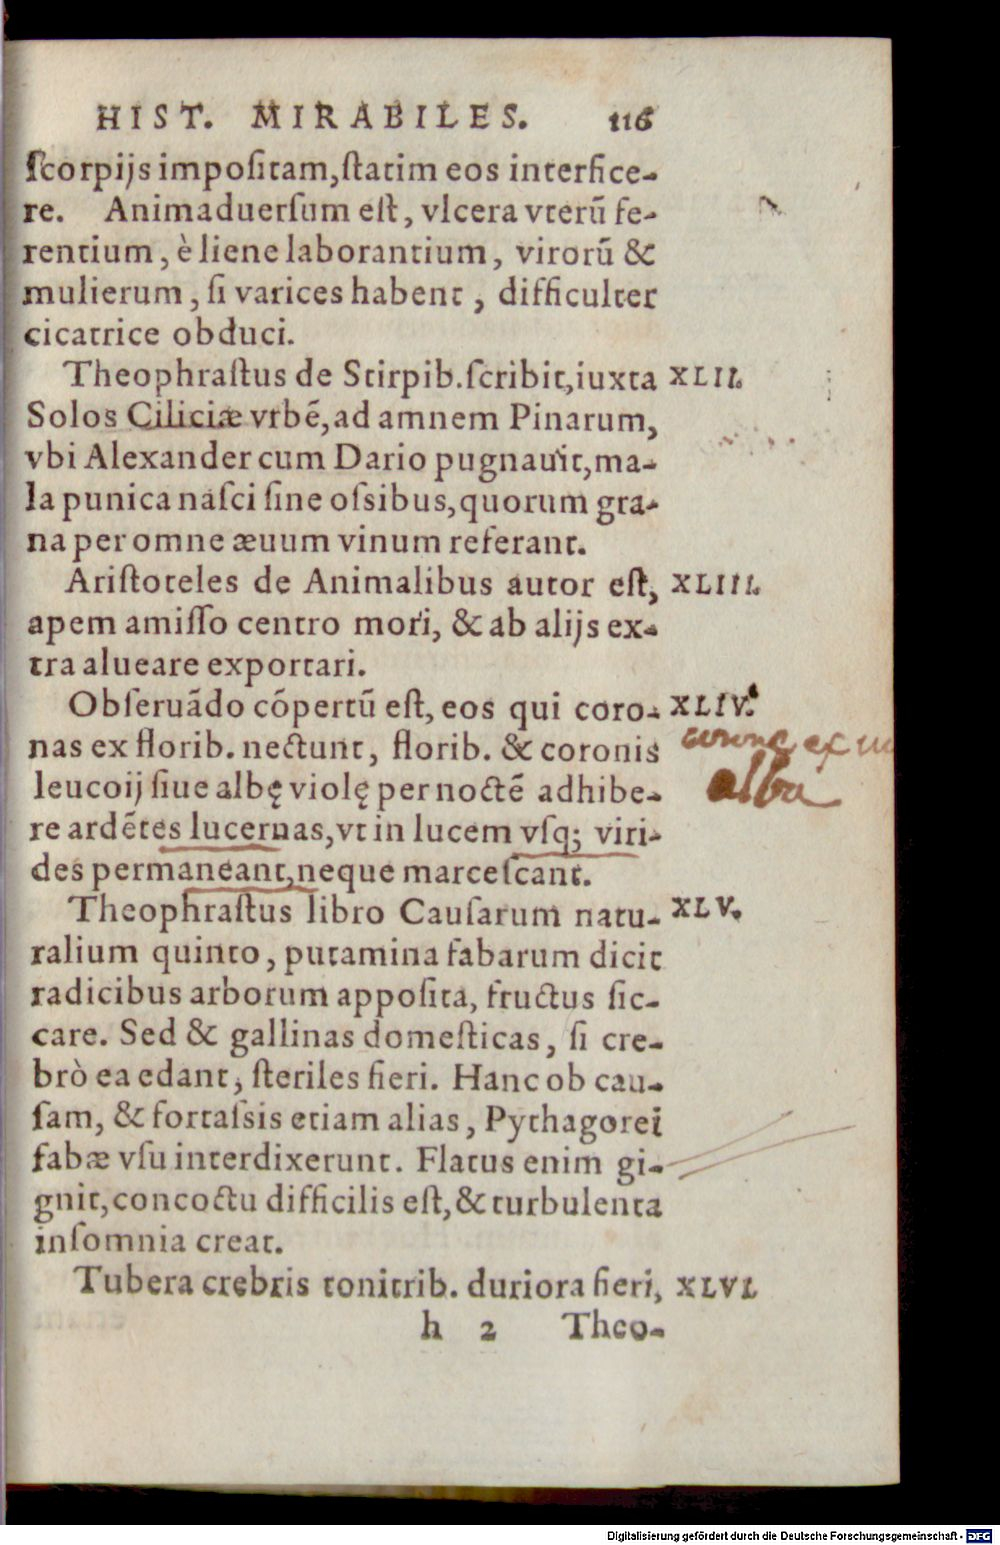 HIST. MIRABILES. 116
ſcorpijs impoſitam, ſtatim eos interfice-
re. Animaduerſum eſt, vlcera vterũ fe-
rentium, è liene laborantium, virorũ &
mulierum, ſi varices habent, difficulter
cicatrice obduci.
Theophraſtus de Stirpib. ſcribit, iuxta XLII.
Solos Ciliciæ vrbẽ, ad amnem Pinarum,
vbi Alexander cum Dario pugnauit, ma-
la punica naſci ſine oſsibus, quorum gra-
na per omne æuum vinum referant.
Ariſtoteles de Animalibus autor eſt, XLIII.
apem amiſſo centro mori, & ab alijs ex-
tra alueare exportari.
Obſeruãdo cõpertũ eſt, eos qui coro- XLIV.
nas ex florib. nectunt, florib. & coronis
leucoij ſiue albę violę per noctẽ adhibe-
alba
re ardẽtes lucernas, vt in lucem vſq; viri-
des permaneant, neque marceſcant.
Theophraſtus libro Cauſarum natu- XLV.
ralium quinto, putamina fabarum dicit
radicibus arborum appoſita, fructus ſic-
care. Sed & gallinas domeſticas, ſi cre-
brò ea edant, ſteriles fieri. Hanc ob cau-
ſam, & fortaſsis etiam alias, Pythagorei
fabæ vſu interdixerunt. Flatus enim gi-
gnit, concoctu difficilis eſt, & turbulenta
inſomnia creat.
Tubera crebris tonitrib. duriora fieri, XLVI.
h 2 Theo-
Digitalisierung gefördert durch die Deutsche Forschungsgemeinschaft - DFG